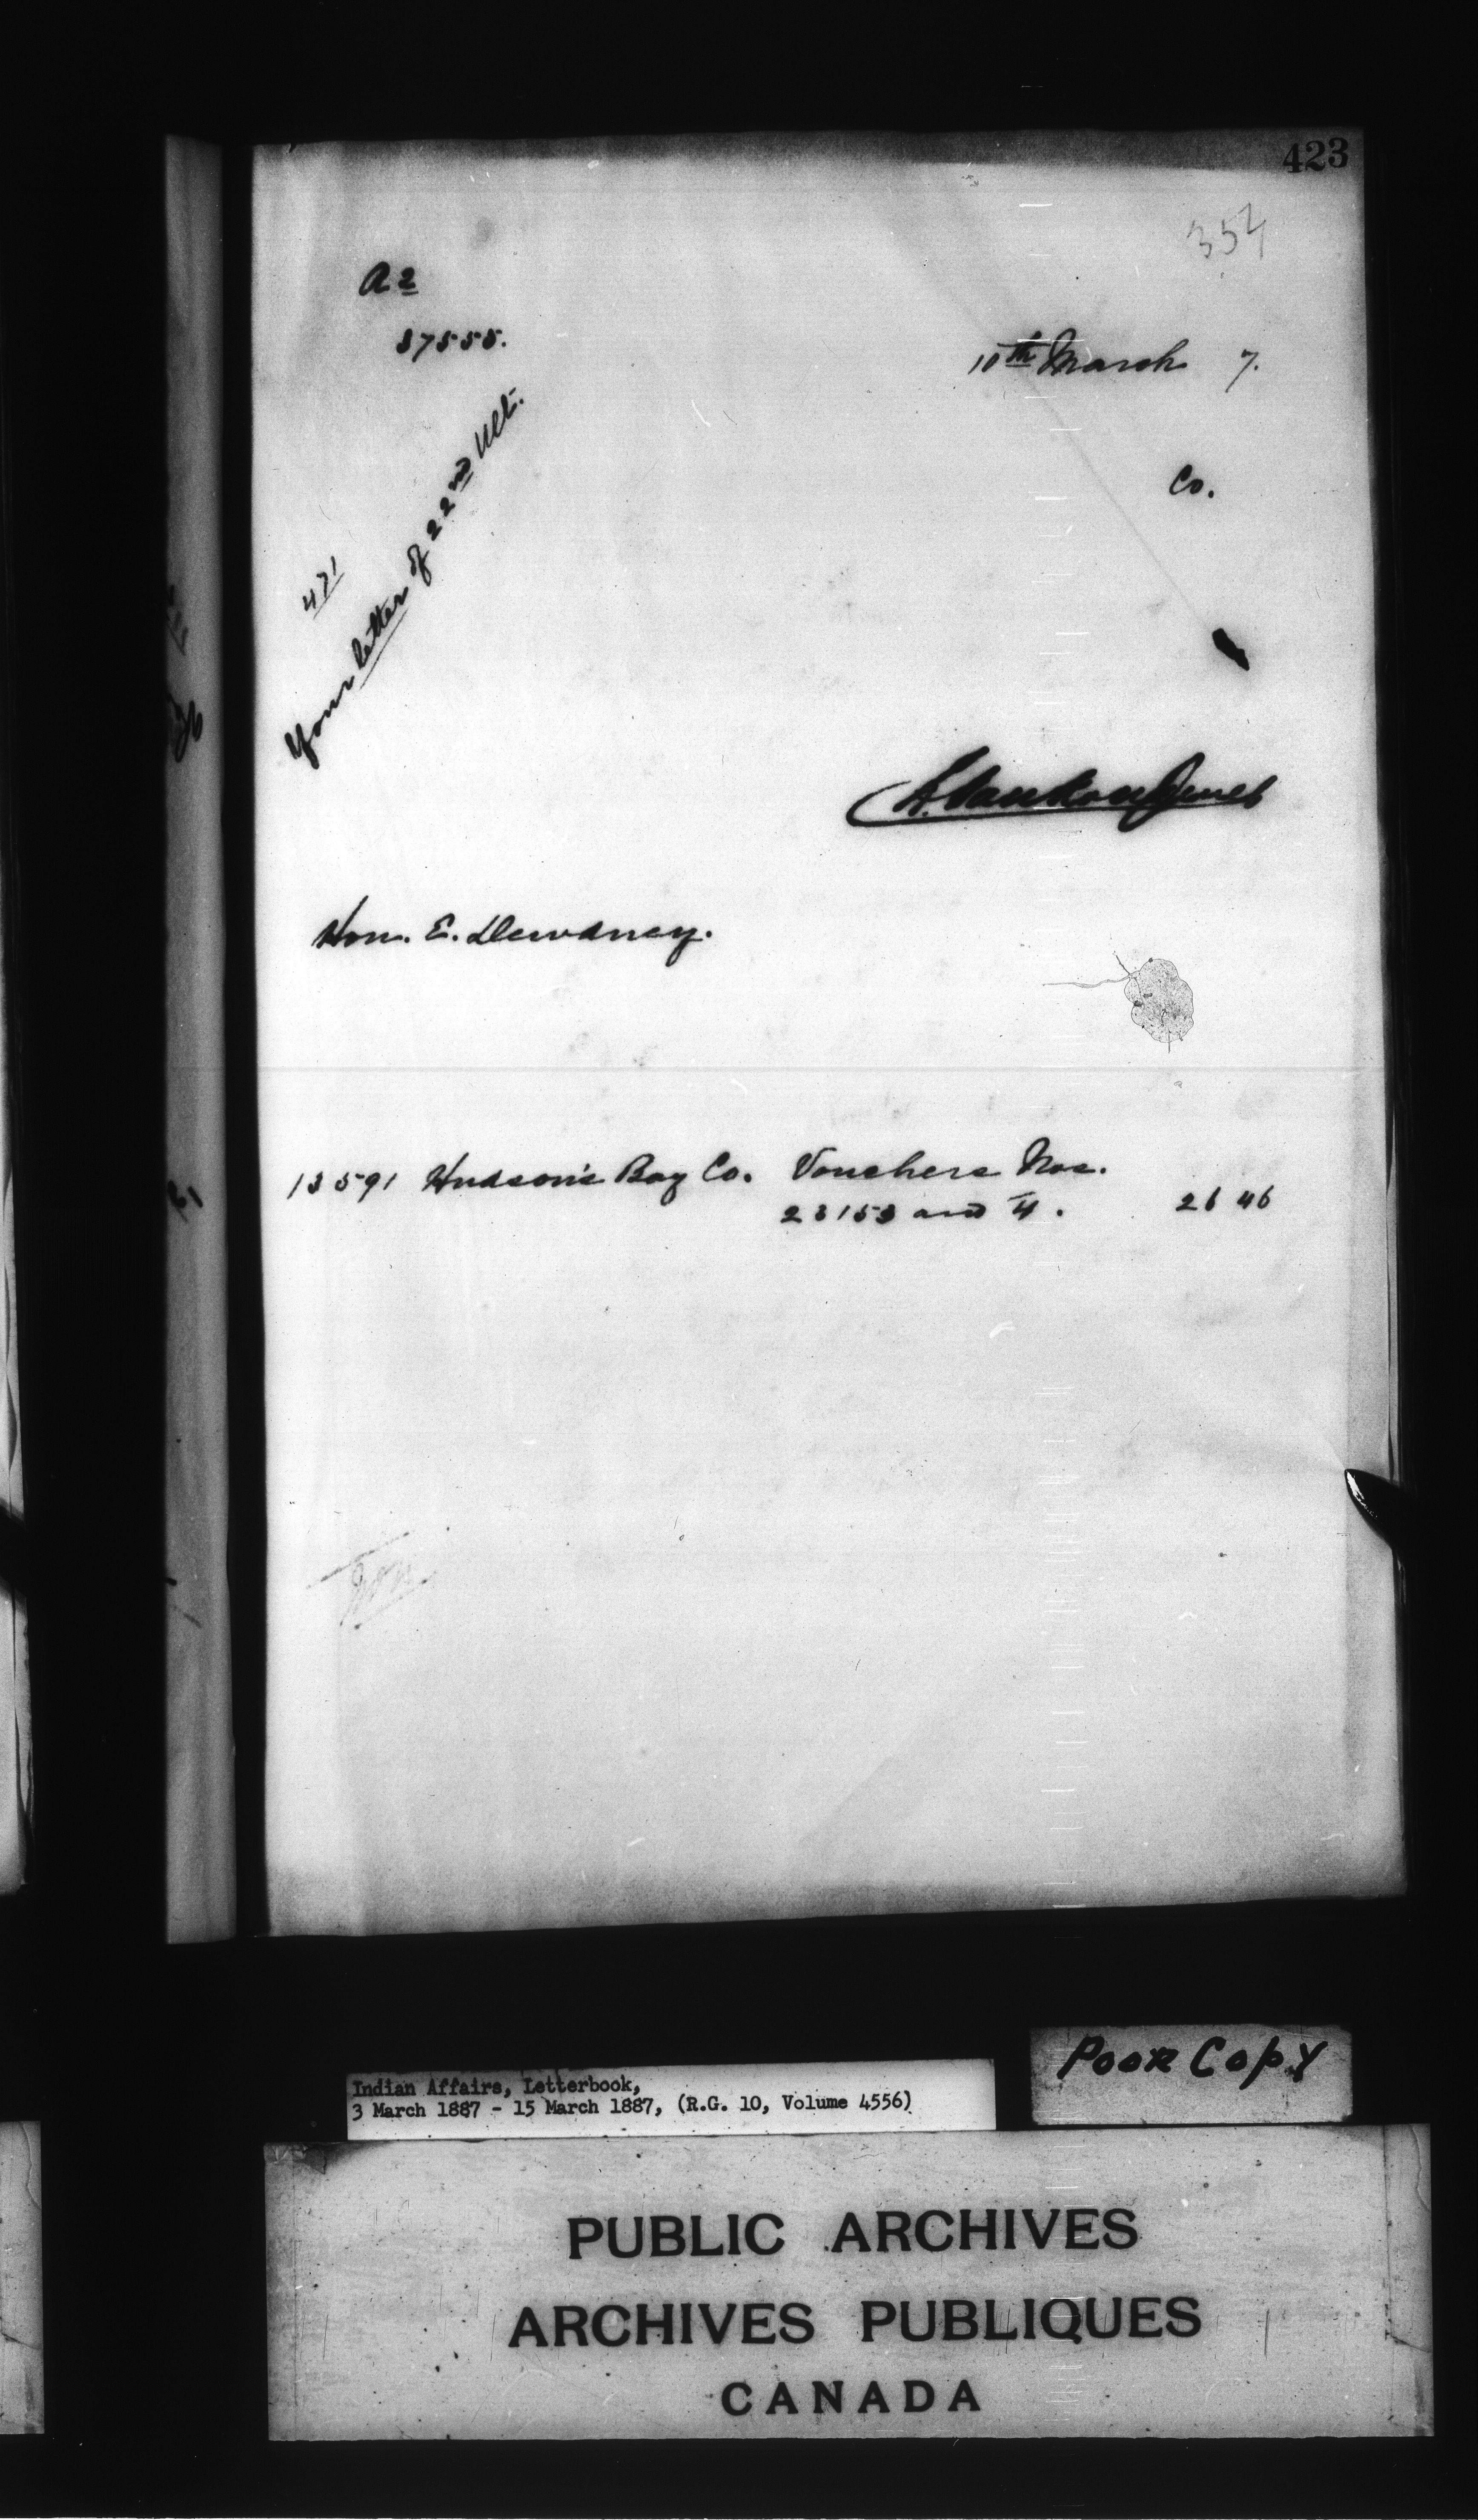 423
354
A 2
37555.
10th March 7.
Co.
471
Your letter of 22nd Ult.
L. Vankoughnet
Hon. E. Dewdney.
13591 Hudson's Bay Co. Vouchers Nos.
23153 and 4. 26 46
Poor Copy
Indian Affairs, Letterbook,
3 March 1887 - 15 March 1887, (R.G. 10, Volume 4556)
PUBLIC ARCHIVES
ARCHIVES PUBLIQUES
CANADA